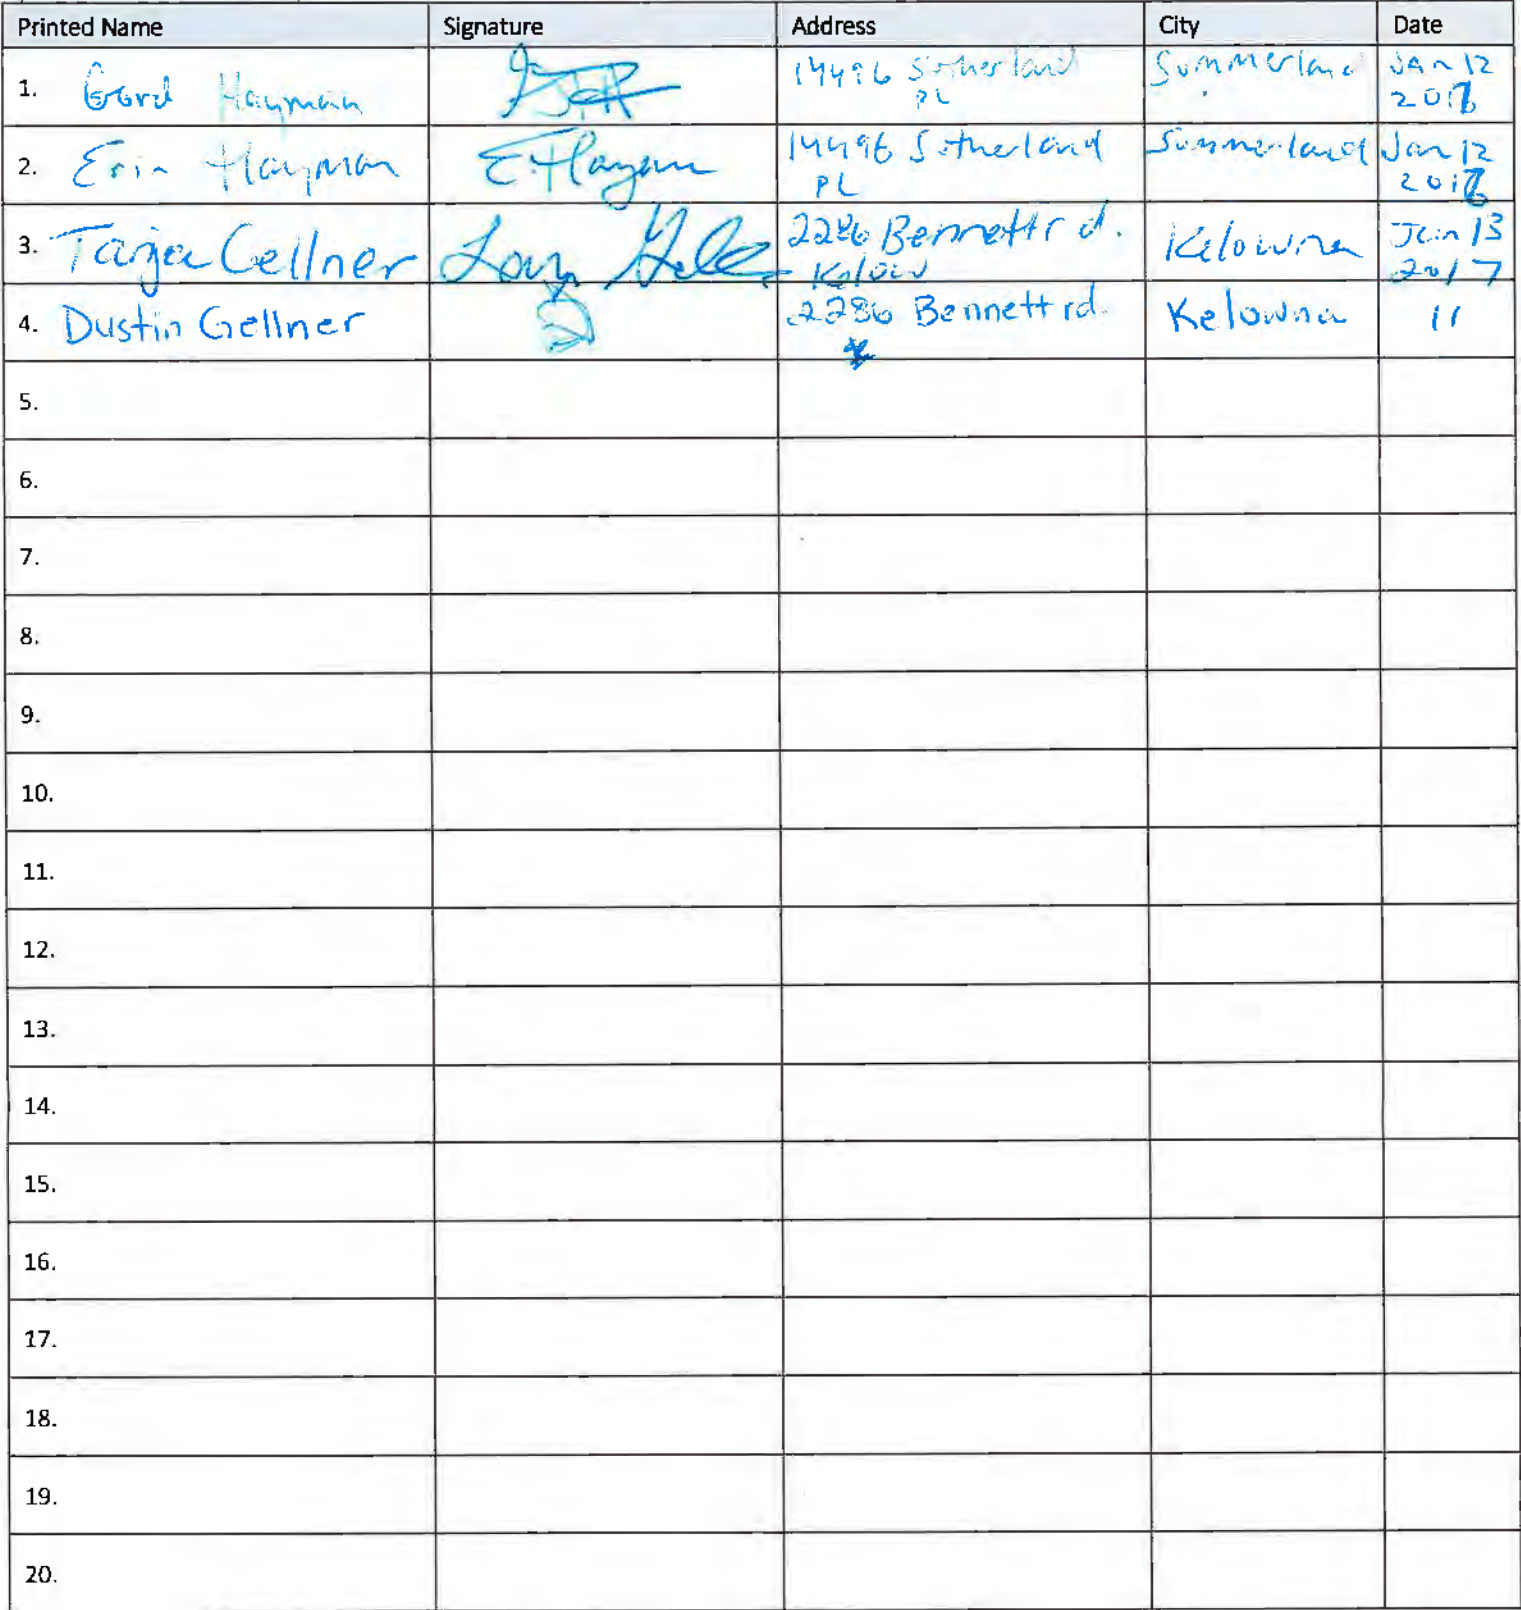 Printed Name Signature Address City Date
1. Gord Hayman 14496 Sutherland Summerland JAN 12
PL 2017
2. Erin Hayman E Hayman 14496 Sutherland Summerland Jan 12
PL 2017
3. Tanja Gellner 2286 Bennett rd. Kelowna Jan 13
Kelow 2017
4. Dustin Gellner 2286 Bennett rd. Kelowna 11
5.
6.
7.
8.
9.
10.
11.
12.
13.
14.
15.
16.
17.
18.
19.
20.